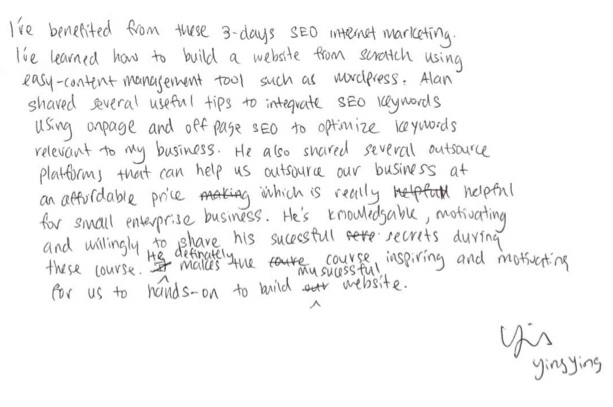 I've benefited from these 3-days SEO internet marketing.
I've learned how to build a website from scratch using
easy-content management tool such as wordpress. Alan
shared several useful tips to integrate SEO keywords
using onpage and off page SEO to optimize keywords
relevant to my business. He also shared several outsource
platforms that can help us outsource our business at
an affurdable price making which is really helpfull helpful
for small enterprise business. He's knowledgable, motivating
and willingly to share his sucessful secrets during
these course. He definately makes the course inspiring and motivating
for us to hands-on to build my sucessful website.
Yis
yingying